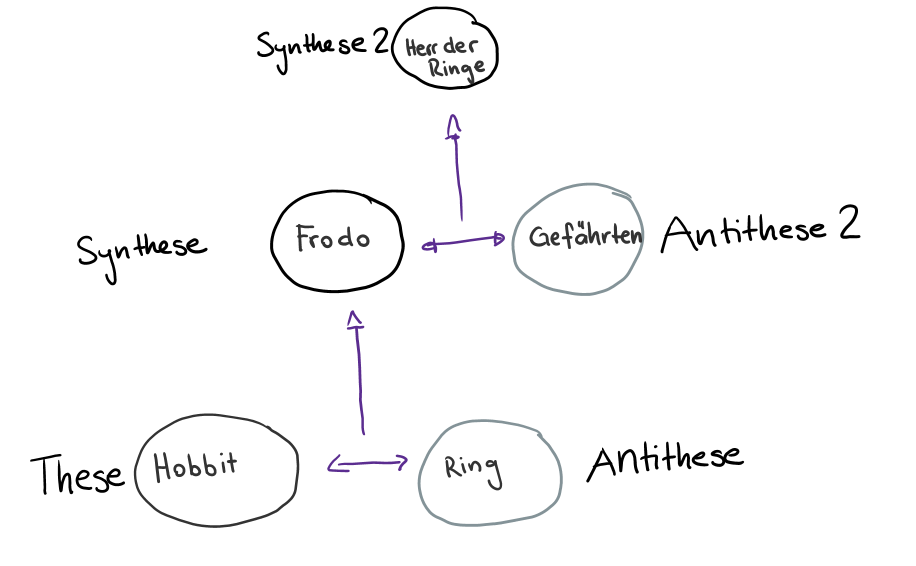 Synthese 2
Herr der
Ringe
Synthese
Frodo
Gefährten
Antithese 2
These
Hobbit
Ring
Antithese